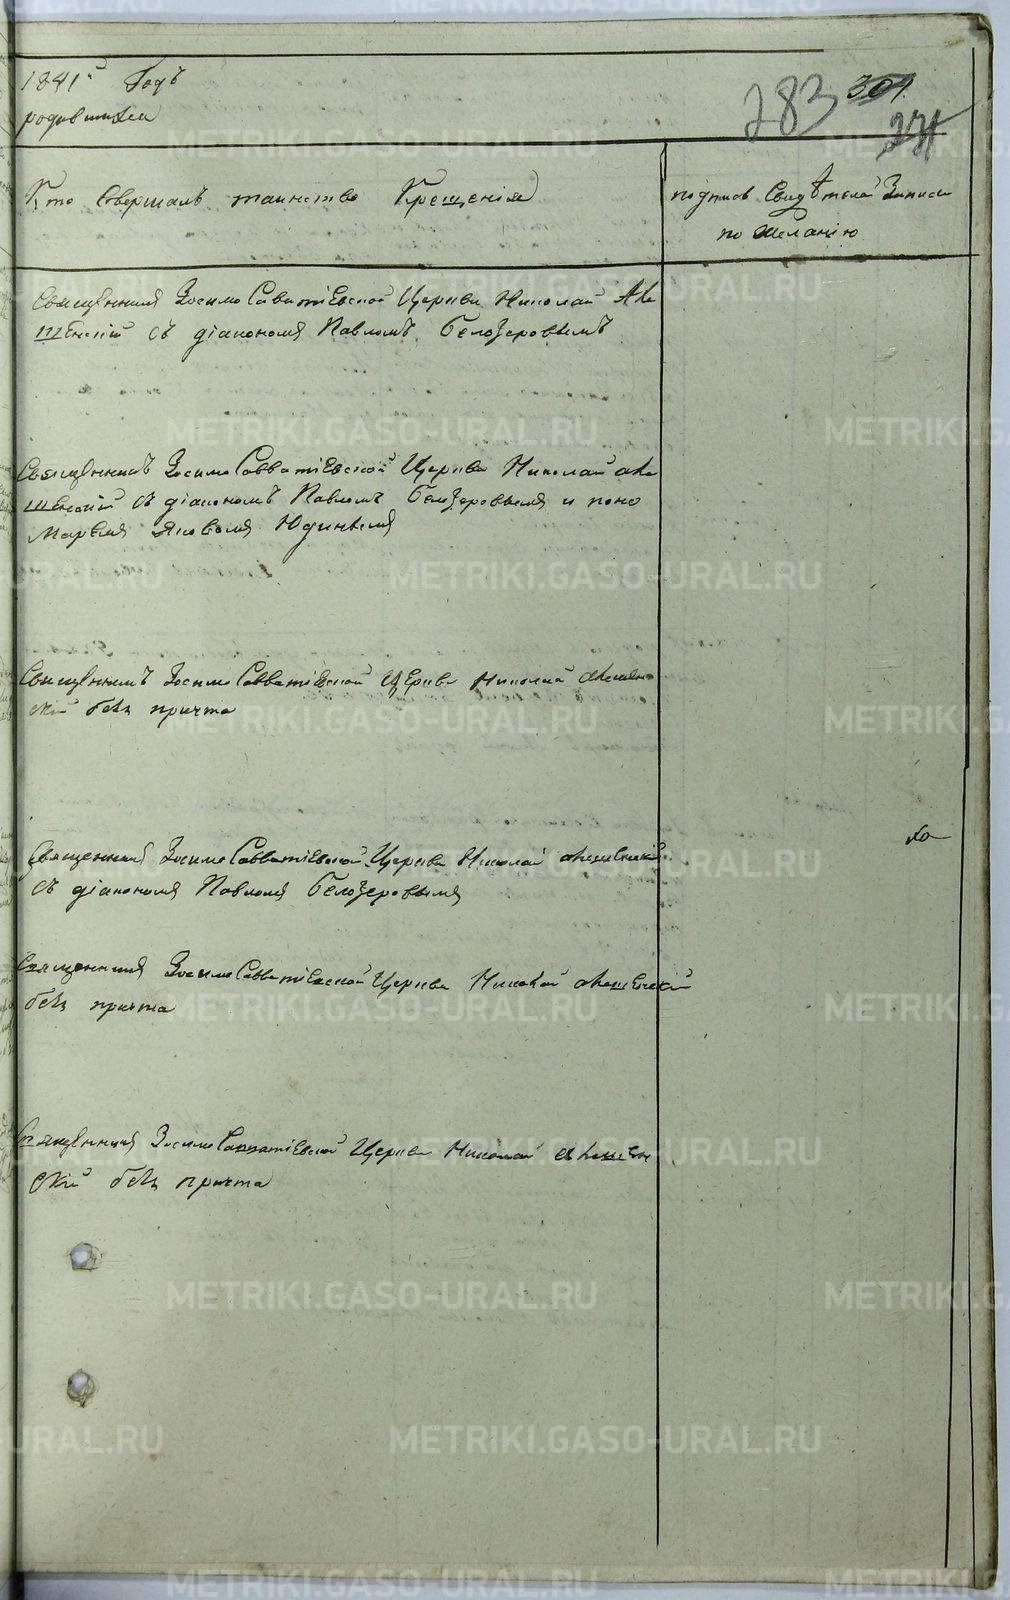 1841й Годъ
родившихся
283
301.
Кто совершалъ таинство Крещенія
подпись Свидѣтелей Записи
по желанію
Священникъ Зосимо Савватіевской Церкви Николай
съ діакономъ Павломъ Белозеровымъ
Священникъ Зосимо Савватіевской Церкви Николай
съ діакономъ Павломъ Белозеровымъ и поно
маремъ Яковомъ Юдинымъ
Священникъ Зосимо Савватіевской Церкви Николай
скій безъ причта
Священникъ Зосимо Савватіевской Церкви Николай
съ діакономъ Павломъ Белозеровымъ
Священникъ Зосимо Савватіевской Церкви Николай
безъ причта
Священникъ Зосимо Савватіевской Церкви Николай
скій безъ причта
METRIKI.GASO-URAL.RU